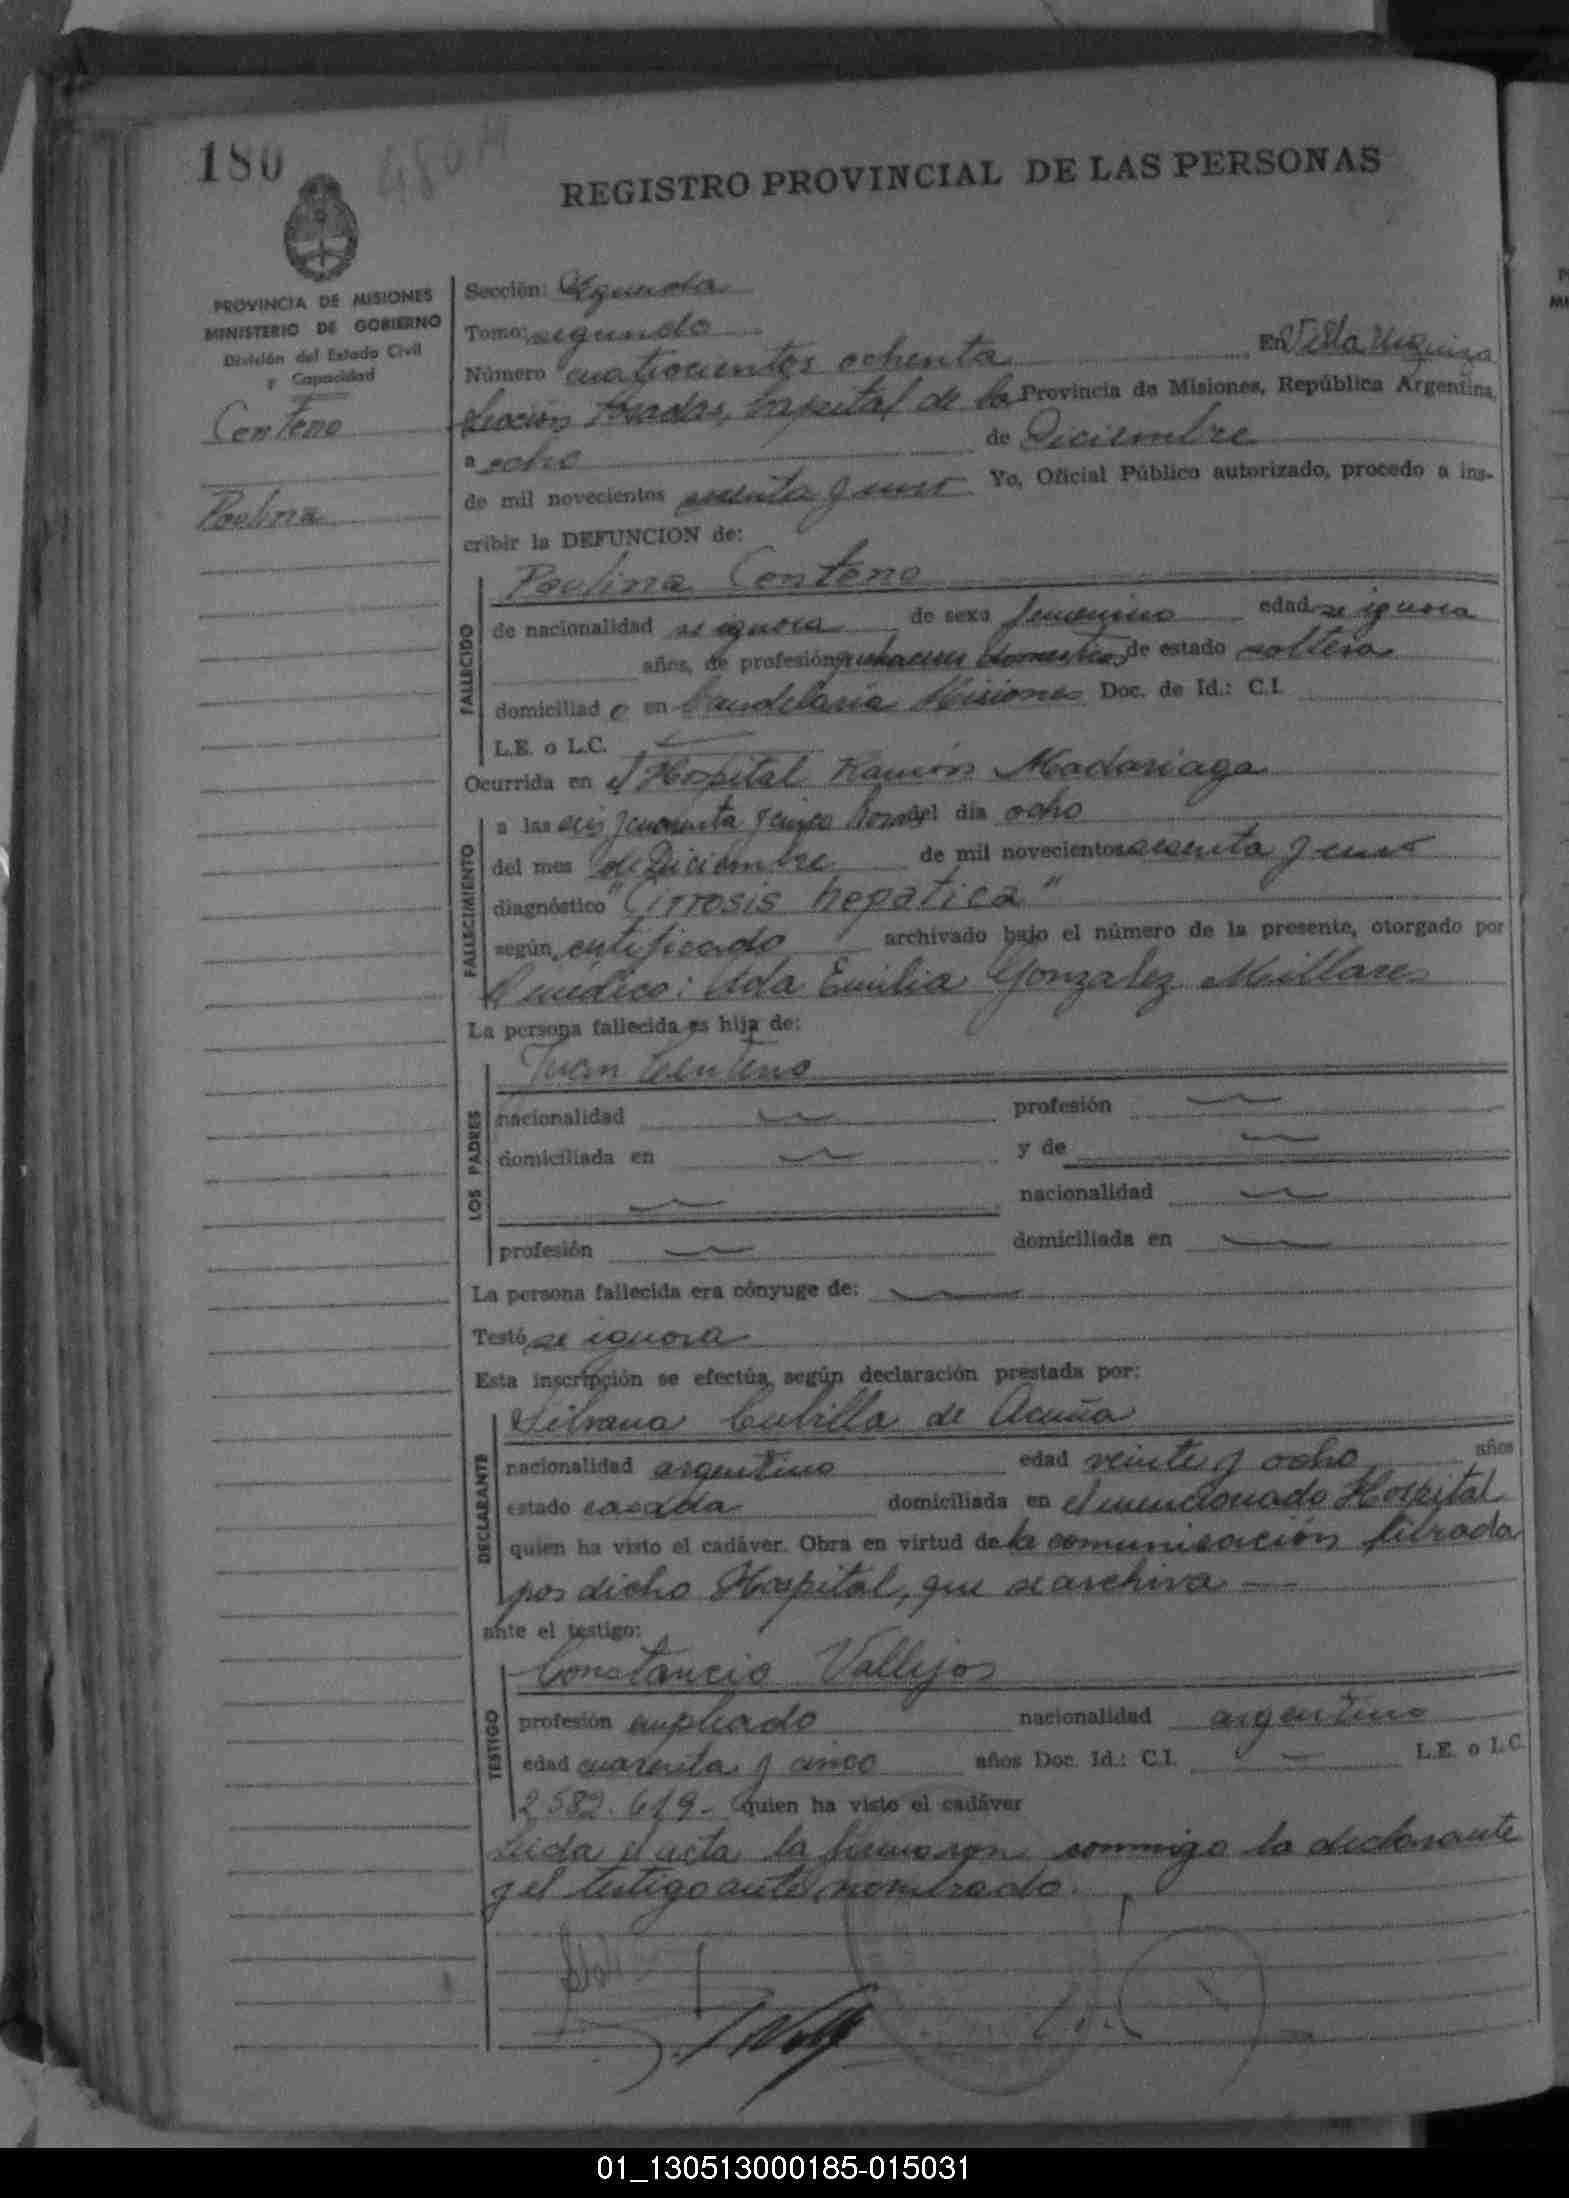 180
480 A
REGISTRO PROVINCIAL DE LAS PERSONAS
PROVINCIA DE MISIONES
MINISTERIO DE GOBIERNO
División del Estado Civil
y Capacidad
Centeno
Paulina
Sección: Segunda
Tomo: segundo
Número cuatrocientos ochenta En Villa Urquiza
sección Posadas, capital de la Provincia de Misiones, República Argentina,
a ocho de Diciembre
de mil novecientos sesenta y uno Yo, Oficial Público autorizado, procedo a ins-
cribir la DEFUNCION de:
FALLECIDO
Paulina Centeno
de nacionalidad se ignora de sexo femenino edad se ignora
años, de profesión quehaceres domesticos de estado soltera
domiciliad o en Candelaria Misiones Doc. de Id.: C.I.
L.E. o L.C.
Ocurrida en el Hospital Ramón Madariaga
FALLECIMIENTO
a las seis y cuarenta y cinco horas del día ocho
del mes de Diciembre de mil novecientos sesenta y uno
diagnóstico "Cirrosis hepatica"
según certificado archivado bajo el número de la presente, otorgado por
el medico: Ada Emilia Gonzalez Millares
La persona fallecida es hija de:
LOS PADRES
Juan Centeno
nacionalidad profesión
domiciliada en y de
nacionalidad
profesión domiciliada en
La persona fallecida era cónyuge de:
Testó se ignora
Esta inscripción se efectúa, según declaración prestada por:
DECLARANTE
Silvana Cubilla de Acuña
nacionalidad argentina edad veinte y ocho años
estado casada domiciliada en el mencionado Hospital
quien ha visto el cadáver. Obra en virtud de la comunicación librada
por dicho Hospital, que se archiva —
ante el testigo:
TESTIGO
Constancio Vallejos
profesión empleado nacionalidad argentino
edad cuarenta y cinco años Doc. Id.: C.I. — L.E. o L.C.
2.582.619- quien ha visto el cadáver
Leida el acta la firmaron conmigo la declarante
y el testigo ante nombrado.
01_130513000185-015031